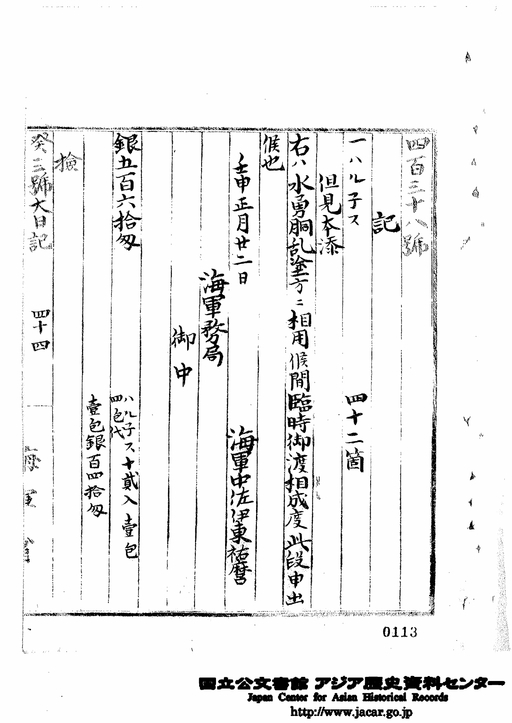 四百三十八號
記
一ハル子ス 四十二箇
但見本添
右ハ水勇胴乱塗方ニ相用候間臨時御渡相成度此段申出
候也
壬申正月廿二日
海軍中佐伊東祐麿
海軍務局
御中
ハル子ス十貳入壹包
四包代
銀五百六拾匁
壹包銀百四拾匁
検
癸三號大日記 四十四
0113
国立公文書館 アジア歴史資料センター
Japan Center for Asian Historical Records
http://www.jacar.go.jp